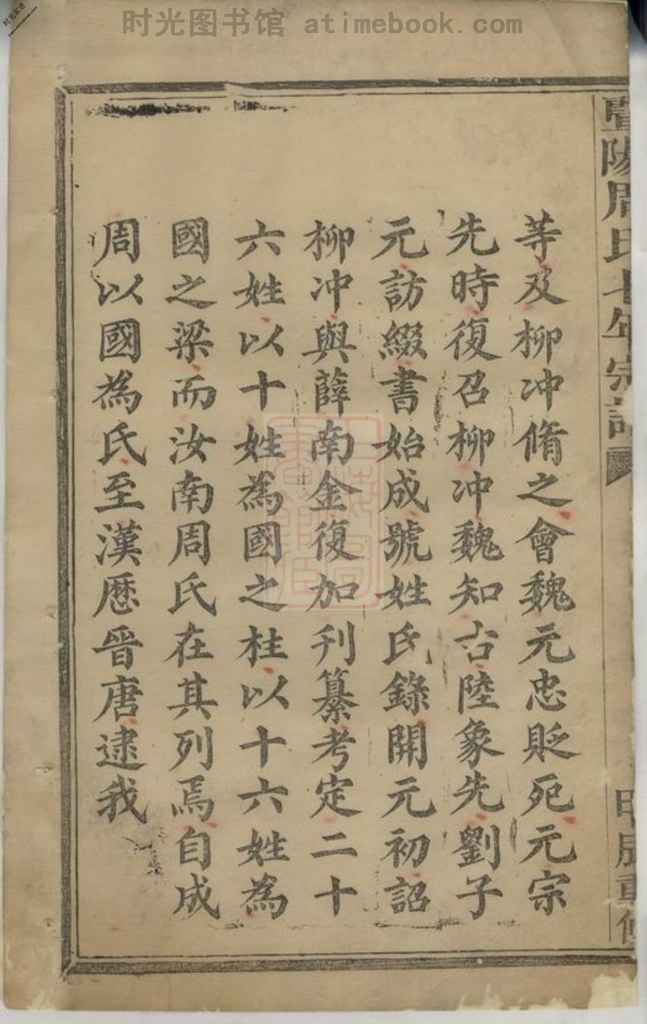 时光图书馆 atimebook.com
暨陽周氏七年宗譜
甲辰重修
等及柳冲脩之會魏元忠貶死元宗
先時復召柳冲魏知古陸象先劉子
元訪綴書始成號姓氏錄開元初詔
柳冲與薛南金復加刋纂考定二十
六姓以十姓為國之柱以十六姓為
國之梁而汝南周氏在其列焉自成
周以國為氏至漢歷晉唐逮我